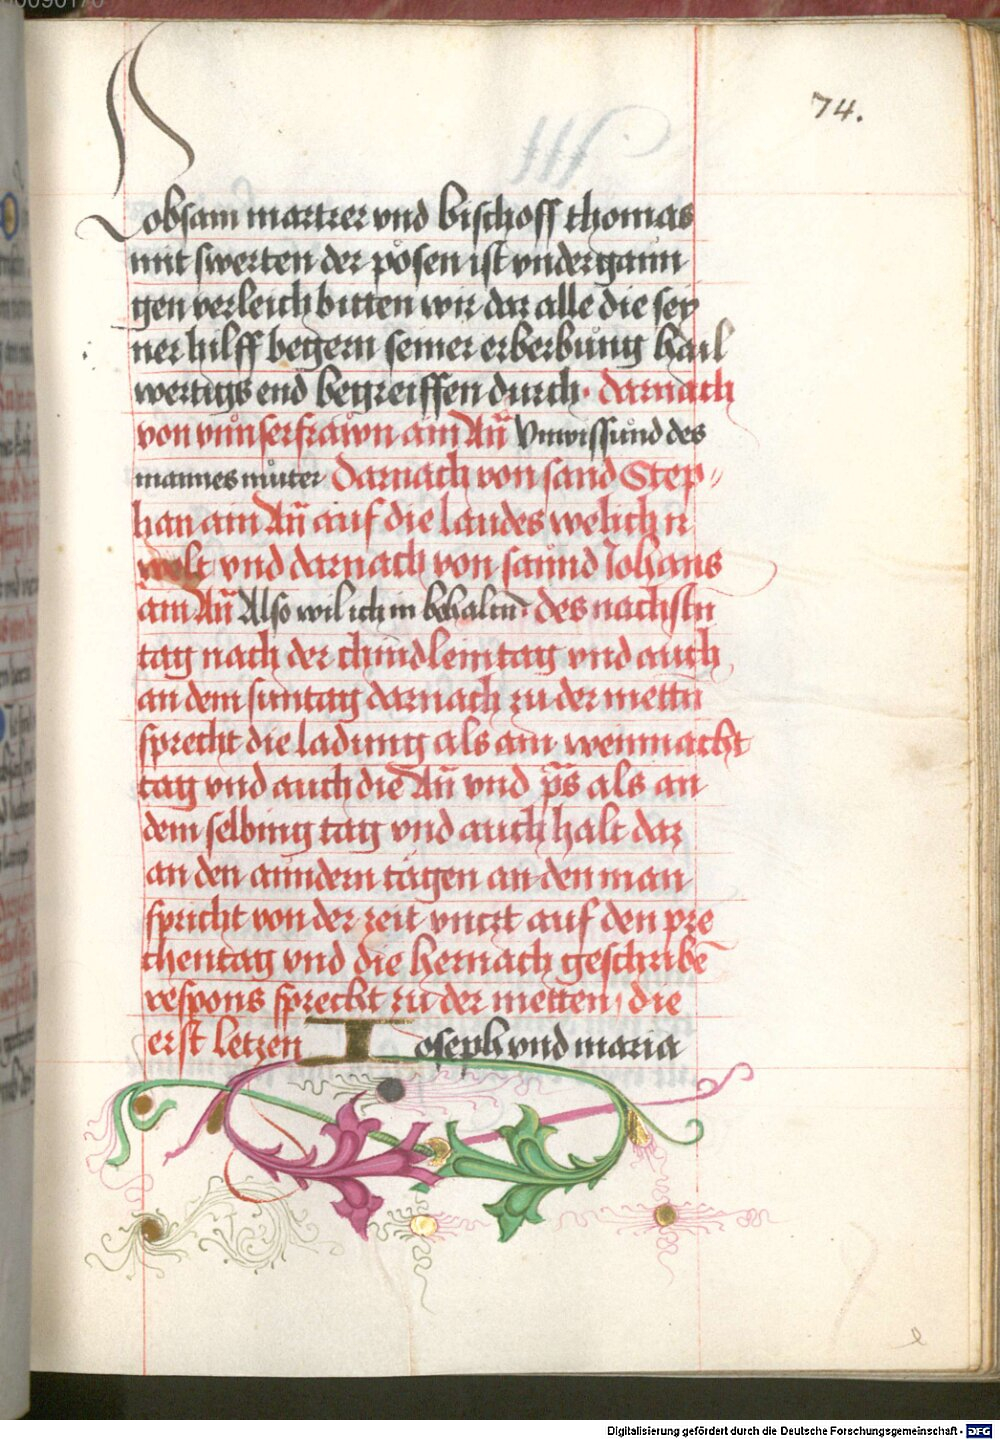 74.
Lobsam martrer vnd bischoff thomas
mit swerten der pösen ist vndergann
gen verleich bitten wir daz alle die sey
ner hilff begern seiner erberbung hail
wertigs end begreiffen durch. darnach
von vnnser frawn ain Añ Vnwissund des
mannes muter Darnach von sand Step
han ain Añ auf die laudes welich ir
welt vnd darnach von sannd Iohans
ain Añ Also wil ich in behaltñ des nachstn
tag nach der chindlein tag vnd auch
an dem suntag darnach zu der mettn
sprecht die ladung als am weinnacht
tag vnd auch die Añ vnd ps als an
dem selbing tag vnd auch halt daz
an den anndern tägen an den man
spricht von der zeit vnczt auf den pre
chentag vnd die hernach geschribē
respons sprecht zu der metten, die
erst letzen Ioseph vnd maria
Digitalisierung gefördert durch die Deutsche Forschungsgemeinschaft - DFG